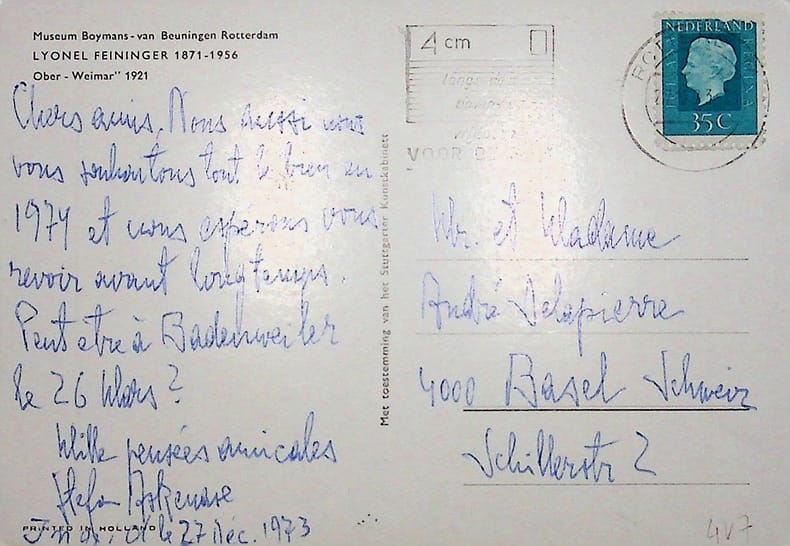 Museum Boymans-van Beuningen Rotterdam
LYONEL FEININGER 1871-1956
Ober - Weimar" 1921
Chers amis, Nous aussi nous
vous souhaitons tout le bien en
1974 et nous espérons vous
revoir avant longtemps.
Peut etre à Badenweiler
le 26 Mars?
Mille pensées amicales
Stefan Askenase
le 27 Déc. 1973
PRINTED IN HOLLAND
Met toestemming van het Stuttgarter Kunstkabinett
4 cm
langs de
VOOR
NEDERLAND
REGINA
35 C
Mr. et Madame
André Delapierre
4000 Basel Schweiz
Schillerstr 2